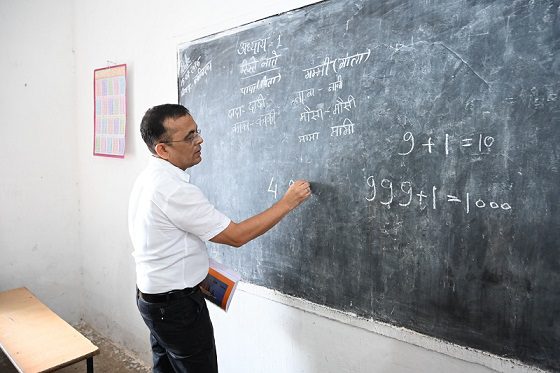 अध्याय-1
रिश्ते नाते
पापा(पिता) मम्मी(माता)
दादा-दादी नाना-नानी
काका-काकी मौसा-मौसी
मामा मामी
9+1=10
999+1=1000
4